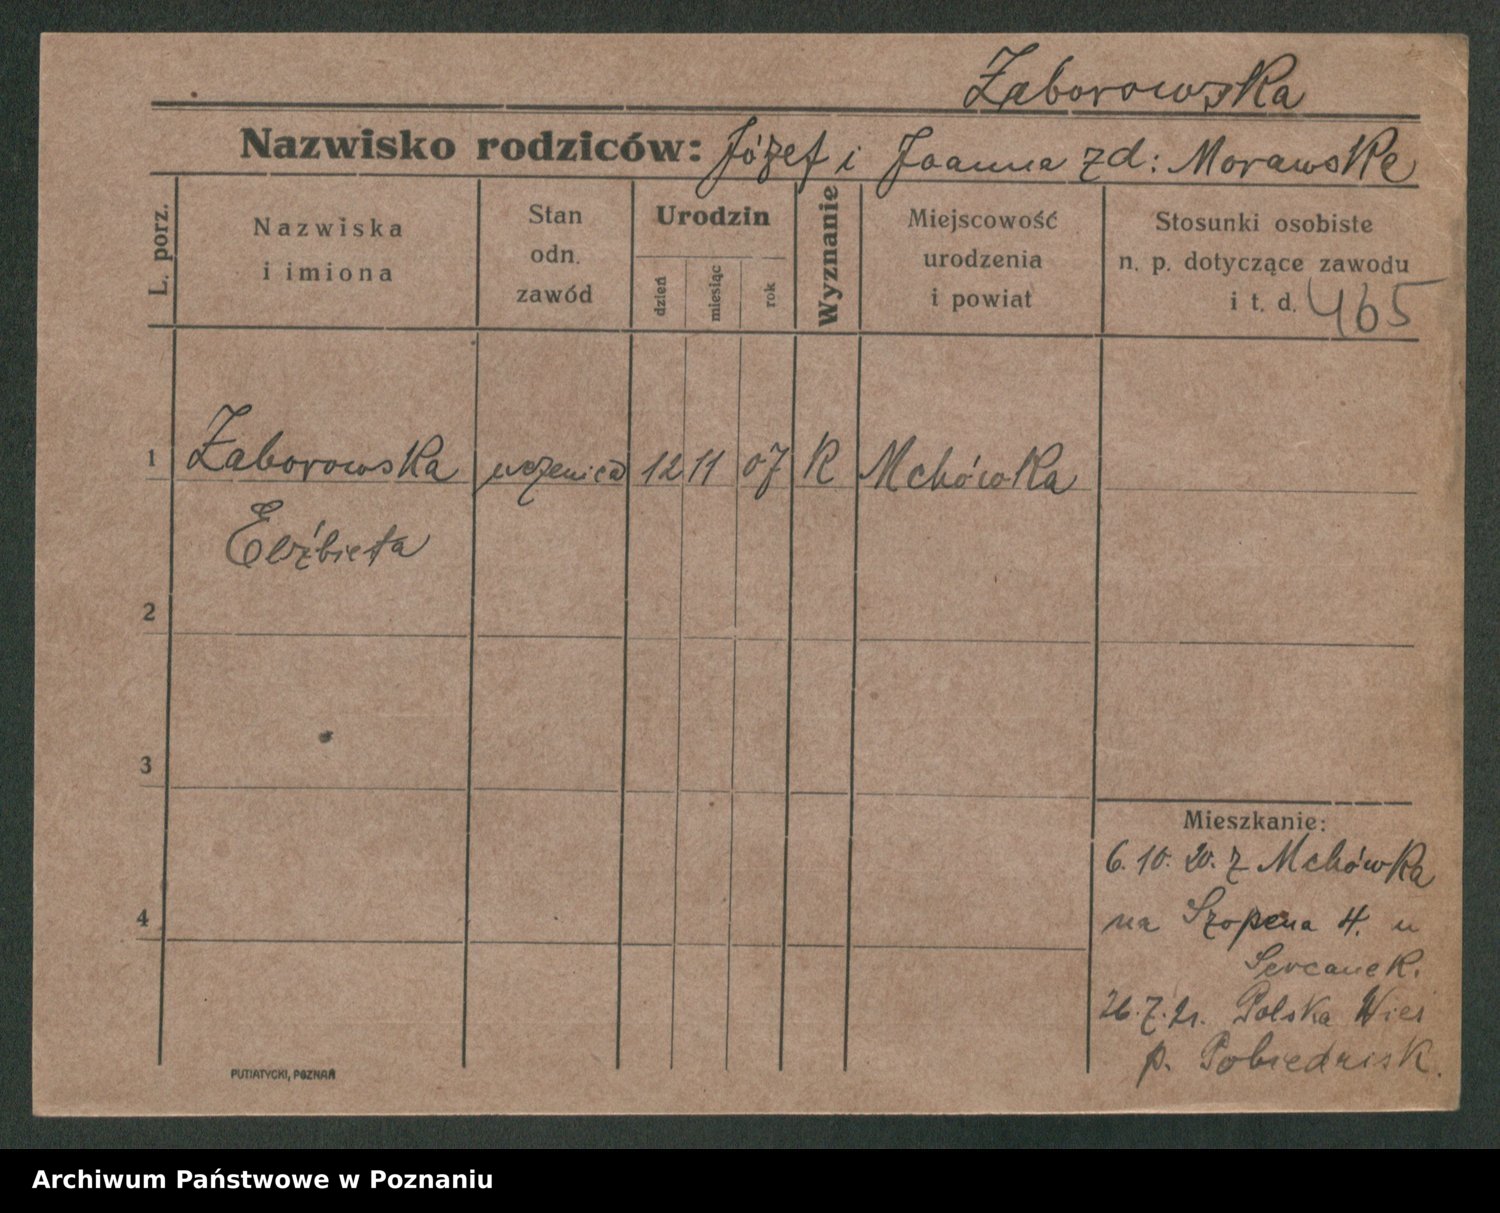 Zaborowska
Nazwisko rodziców: Józef i Joanna zd: Morawske
L. porz.
Nazwiska
i imiona
Stan
odn.
zawód
Urodzin
dzień
miesiąc
rok
Wyznanie
Miejscowość
urodzenia
i powiat
Stosunki osobiste
n. p. dotyczące zawodu
i t. d. 465
1 Zaborowska uczenica 12 11 07 K Mchówka
Elżbieta
2
3
4
Mieszkanie:
6. 10. 20. z Mchówka
na Szopena 4. u
26. 7. 21. Polska Wieś
p. Pobiedzisk.
PUTIATYCKI, POZNAŃ
Archiwum Państwowe w Poznaniu